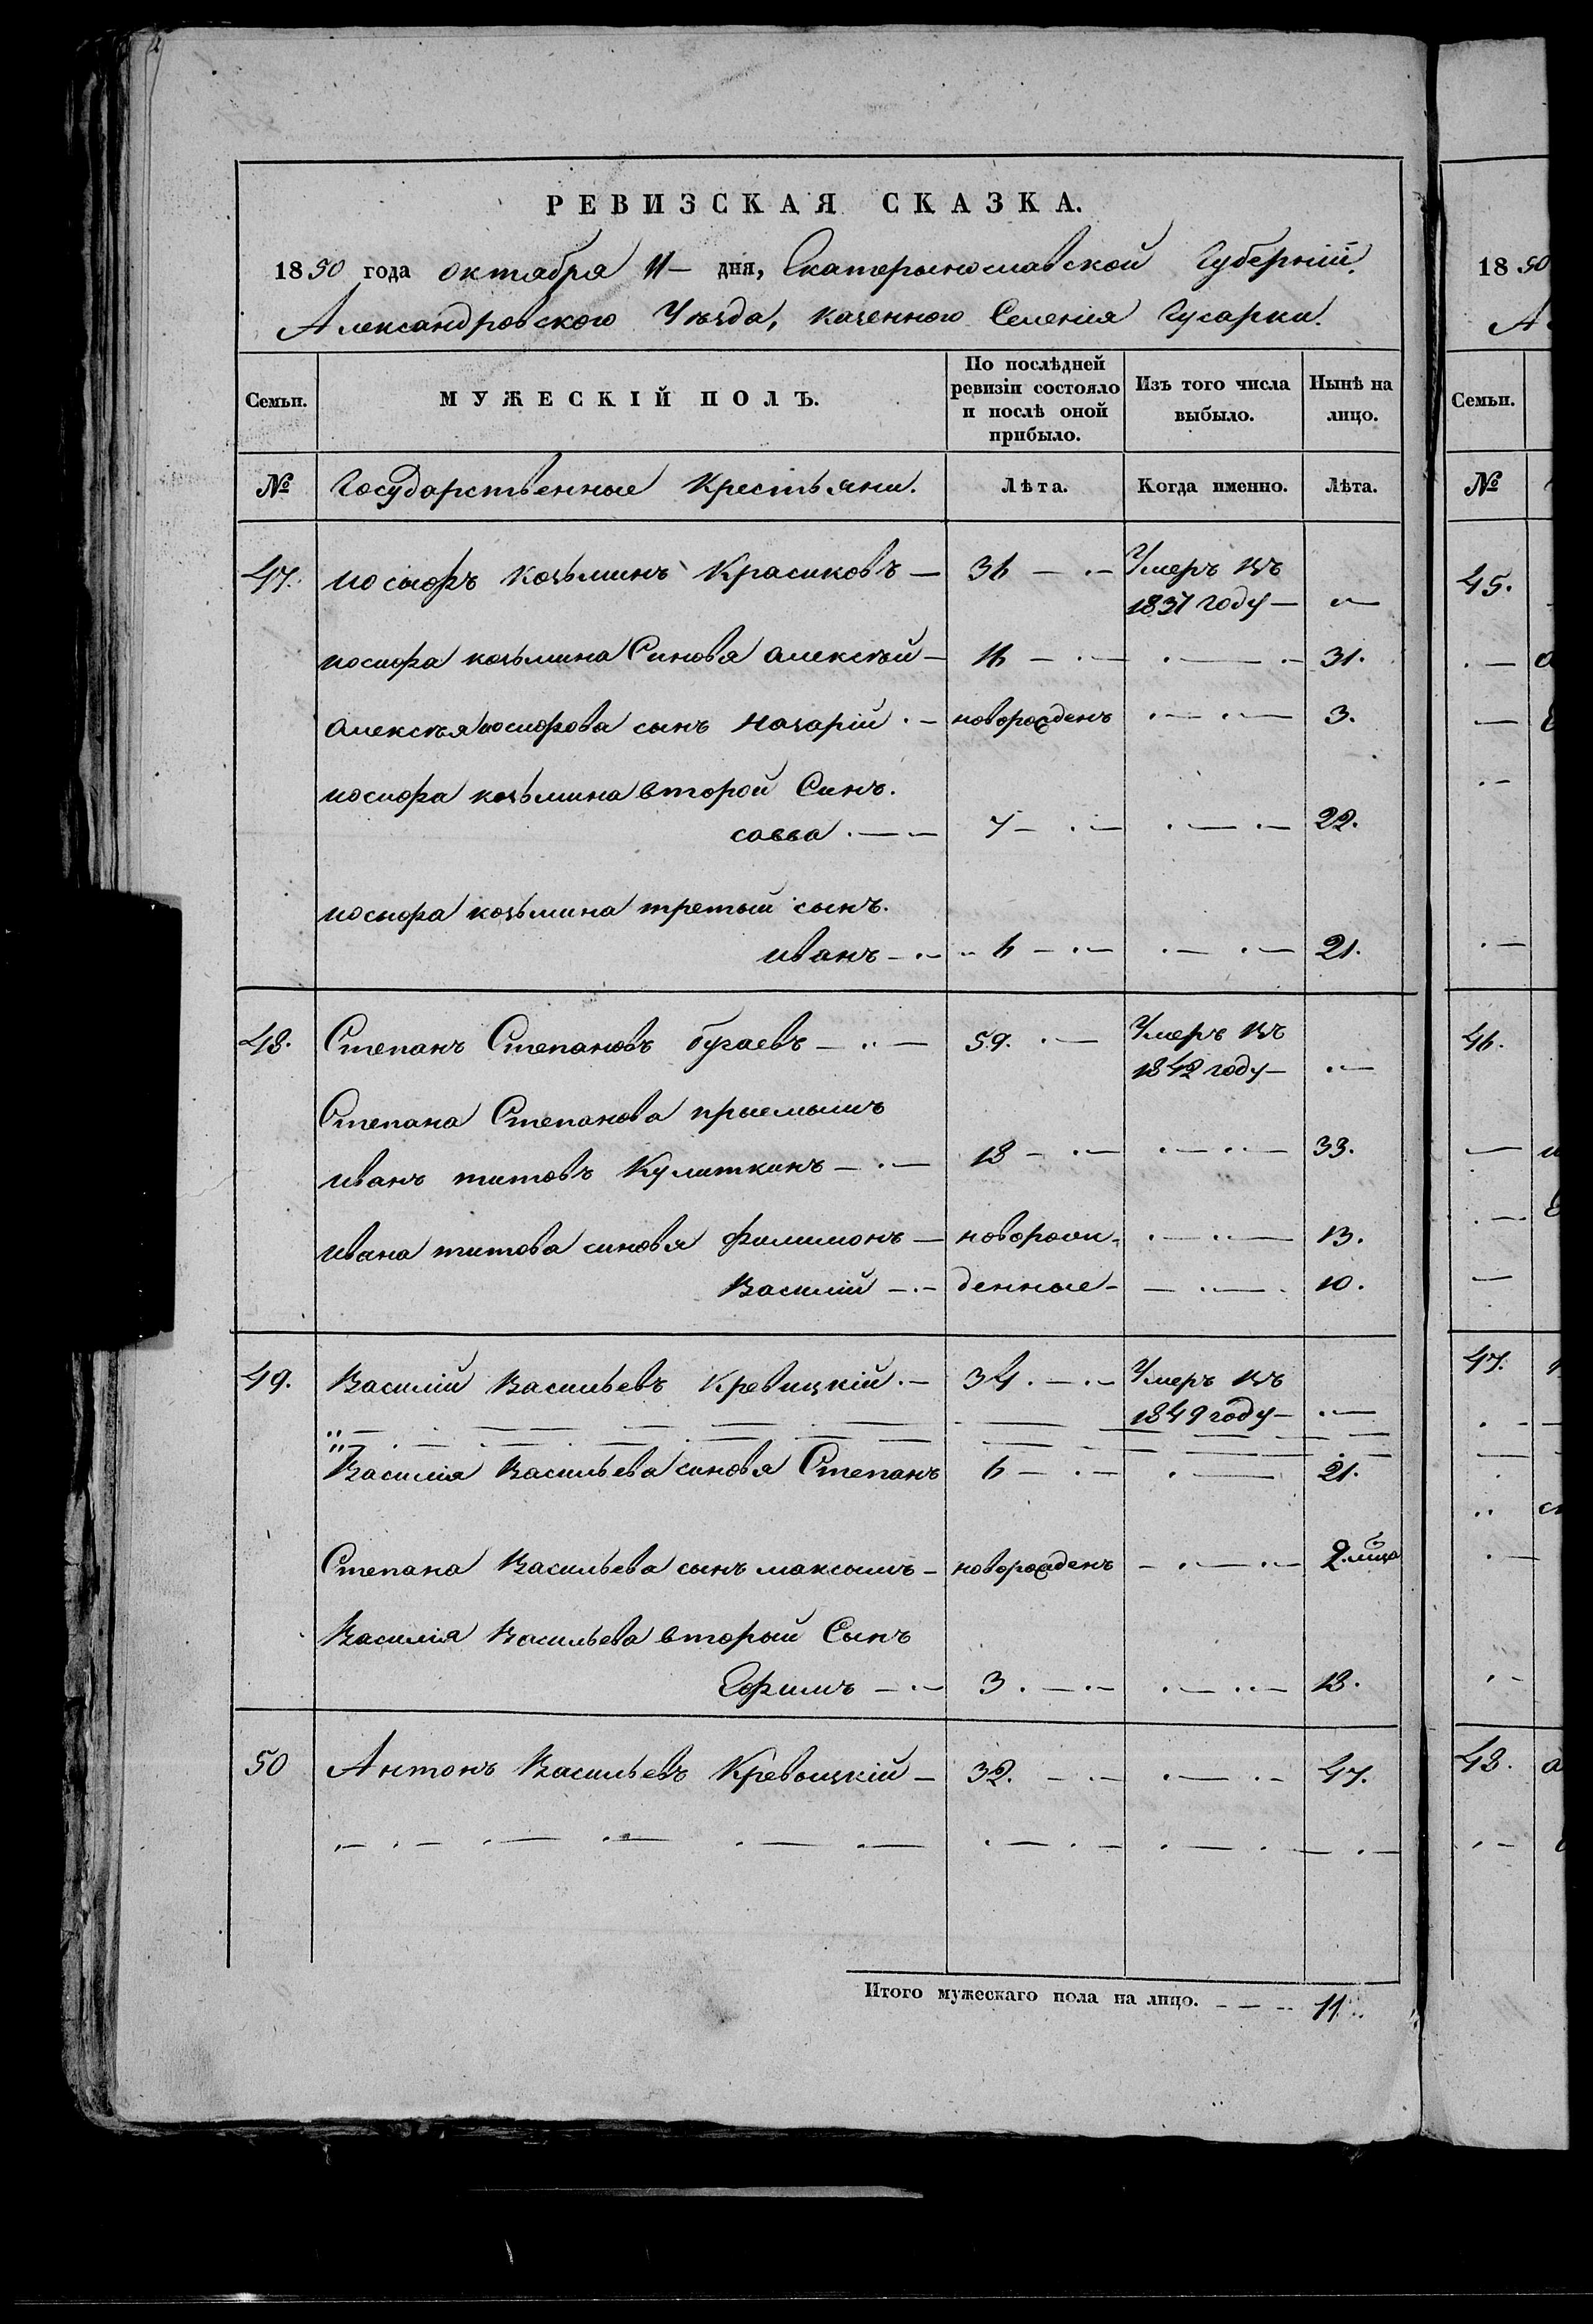 РЕВИЗСКАЯ СКАЗКА.
1850 года октября 11 дня, Екатериносмавской Губерній.
Александровского Уѣзда, казенного Селенія Гусарки.
Семьи.
МУЖЕСКІЙ ПОЛЪ.
По послѣдней ревизіи состояло и послѣ оной прибыло.
Изъ того числа выбыло.
Нынѣ на лицо.
№ Государственные Крестьяни. Лѣта. Когда именно. Лѣта.
47. иосифъ козьминъ Красиковъ — 36 Умеръ въ
1837 году —
иосифа козьмина Синовя алексѣй — 16 31.
алексѣя иосифова сынъ назарій новорожденъ 3.
иосифа козьмина второй Синъ.
савва 7 22.
иосифа козьмина третый сынъ.
иванъ 6 21.
48. Степанъ Степановъ бугаевъ 59. Умеръ въ
1842 году —
Степана Степанова прыемышъ
иванъ титовъ Кулиткинъ 18 33.
ивана титова синовя филимонъ — новорож- 13.
Василій денные 10.
49. Василій Васильевъ Кревицкій. 34. Умеръ въ
1849 году —
Василія Васильева синовя Степанъ 6 21.
Степана Васильева сынъ максымъ — новорожденъ 2.
Василія Васильева вторый Сынъ
Ефимъ 3. 18.
50 Антонъ Васильевъ Кревицкій — 32. 47.
Итого мужескаго пола на лицо. 11.
1850
А
Семьи.
№
45.
46.
47.
48.